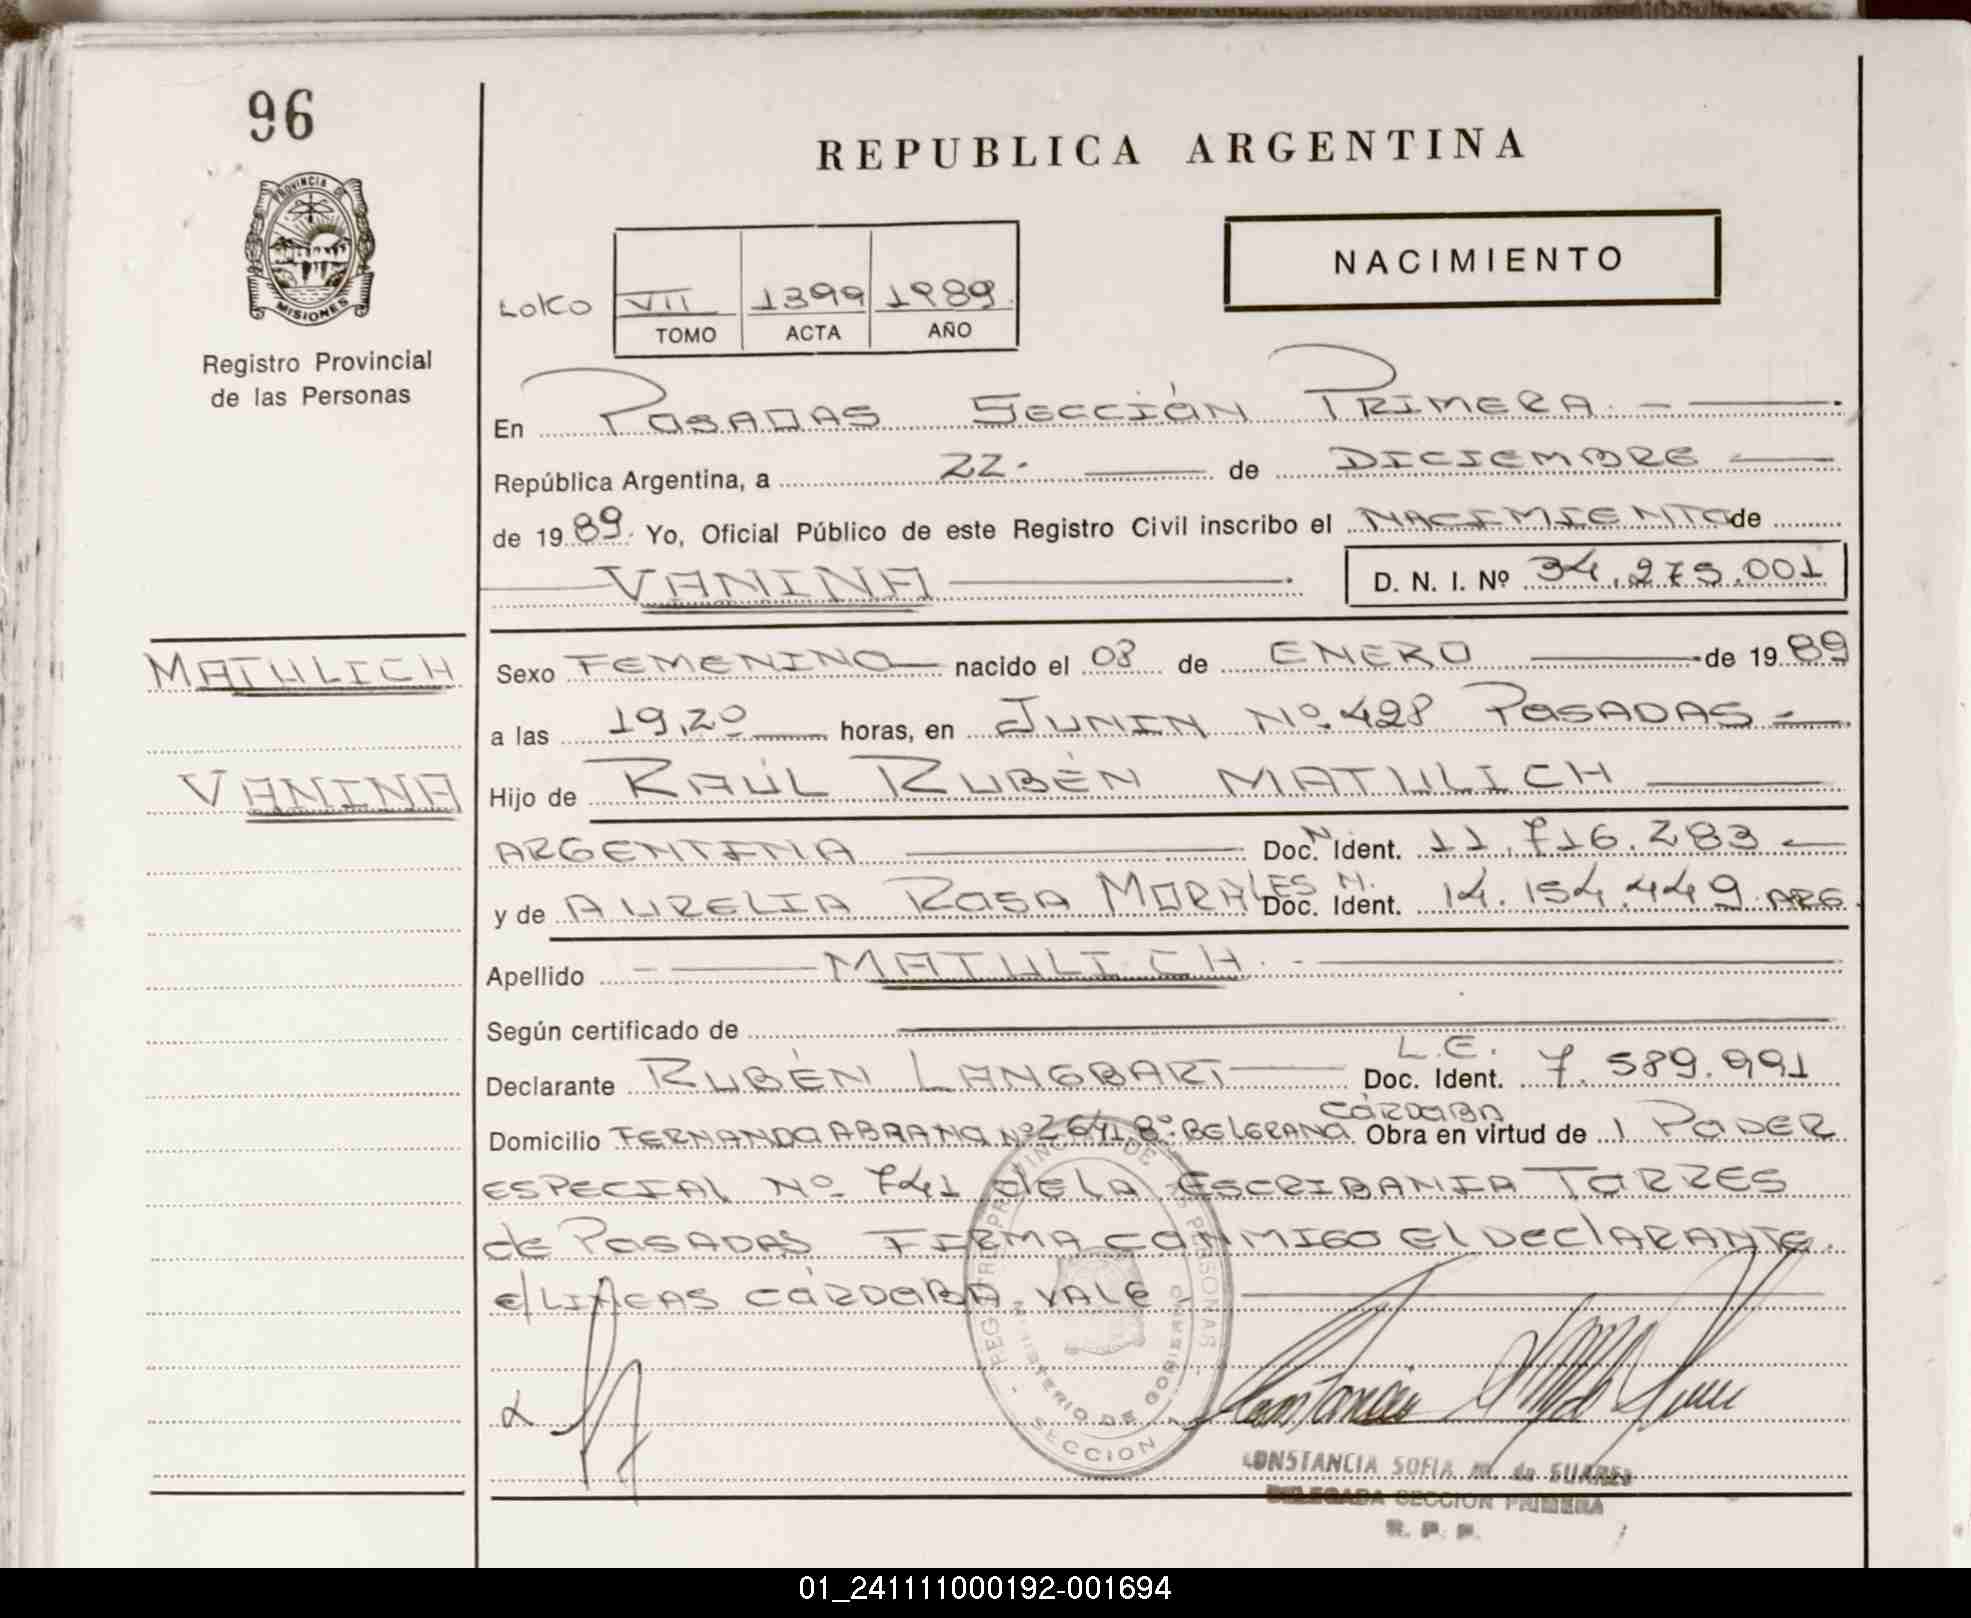 96
REPUBLICA ARGENTINA
PROVINCIA DE
MISIONES
Registro Provincial
de las Personas
NACIMIENTO
LOKO VII 1399 1989
TOMO ACTA AÑO
En POSADAS SECCIÓN PRIMERA
República Argentina, a 22. de DICIEMBRE
de 1989. Yo, Oficial Público de este Registro Civil inscribo el NACIMIENTO de
VANINA D. N. I. Nº 34.275.001
MATULICH
VANINA
Sexo FEMENINO nacido el 03 de ENERO de 1989
a las 19,20 horas, en JUNIN Nº 428 POSADAS
Hijo de RAÚL RUBÉN MATULICH
ARGENTINA Doc. N Ident. 11.716.283
y de AURELIA ROSA MORALES Doc. M. Ident. 14.154.449 ARG.
Apellido MATULICH.
Según certificado de
Declarante RUBÉN LANGBART L.E. Doc. Ident. 7.589.991
Domicilio FERNANDO ABRAMO Nº 2641, Bº BELGRANO CÓRDOBA Obra en virtud de 1 PODER
ESPECIAL Nº 741 de LA ESCRIBANIA TORRES
de POSADAS FIRMA CONMIGO El DEClARANTE.
e/LINEAS CÓRDOBA VALE
REGISTRO PROVINCIAL DE LAS PERSONAS
MINISTERIO DE GOBIERNO
SECCION 1
CONSTANCIA SOFIA M. de SUAREZ
DELEGADA SECCION PRIMERA
R. P. P.
01_241111000192-001694